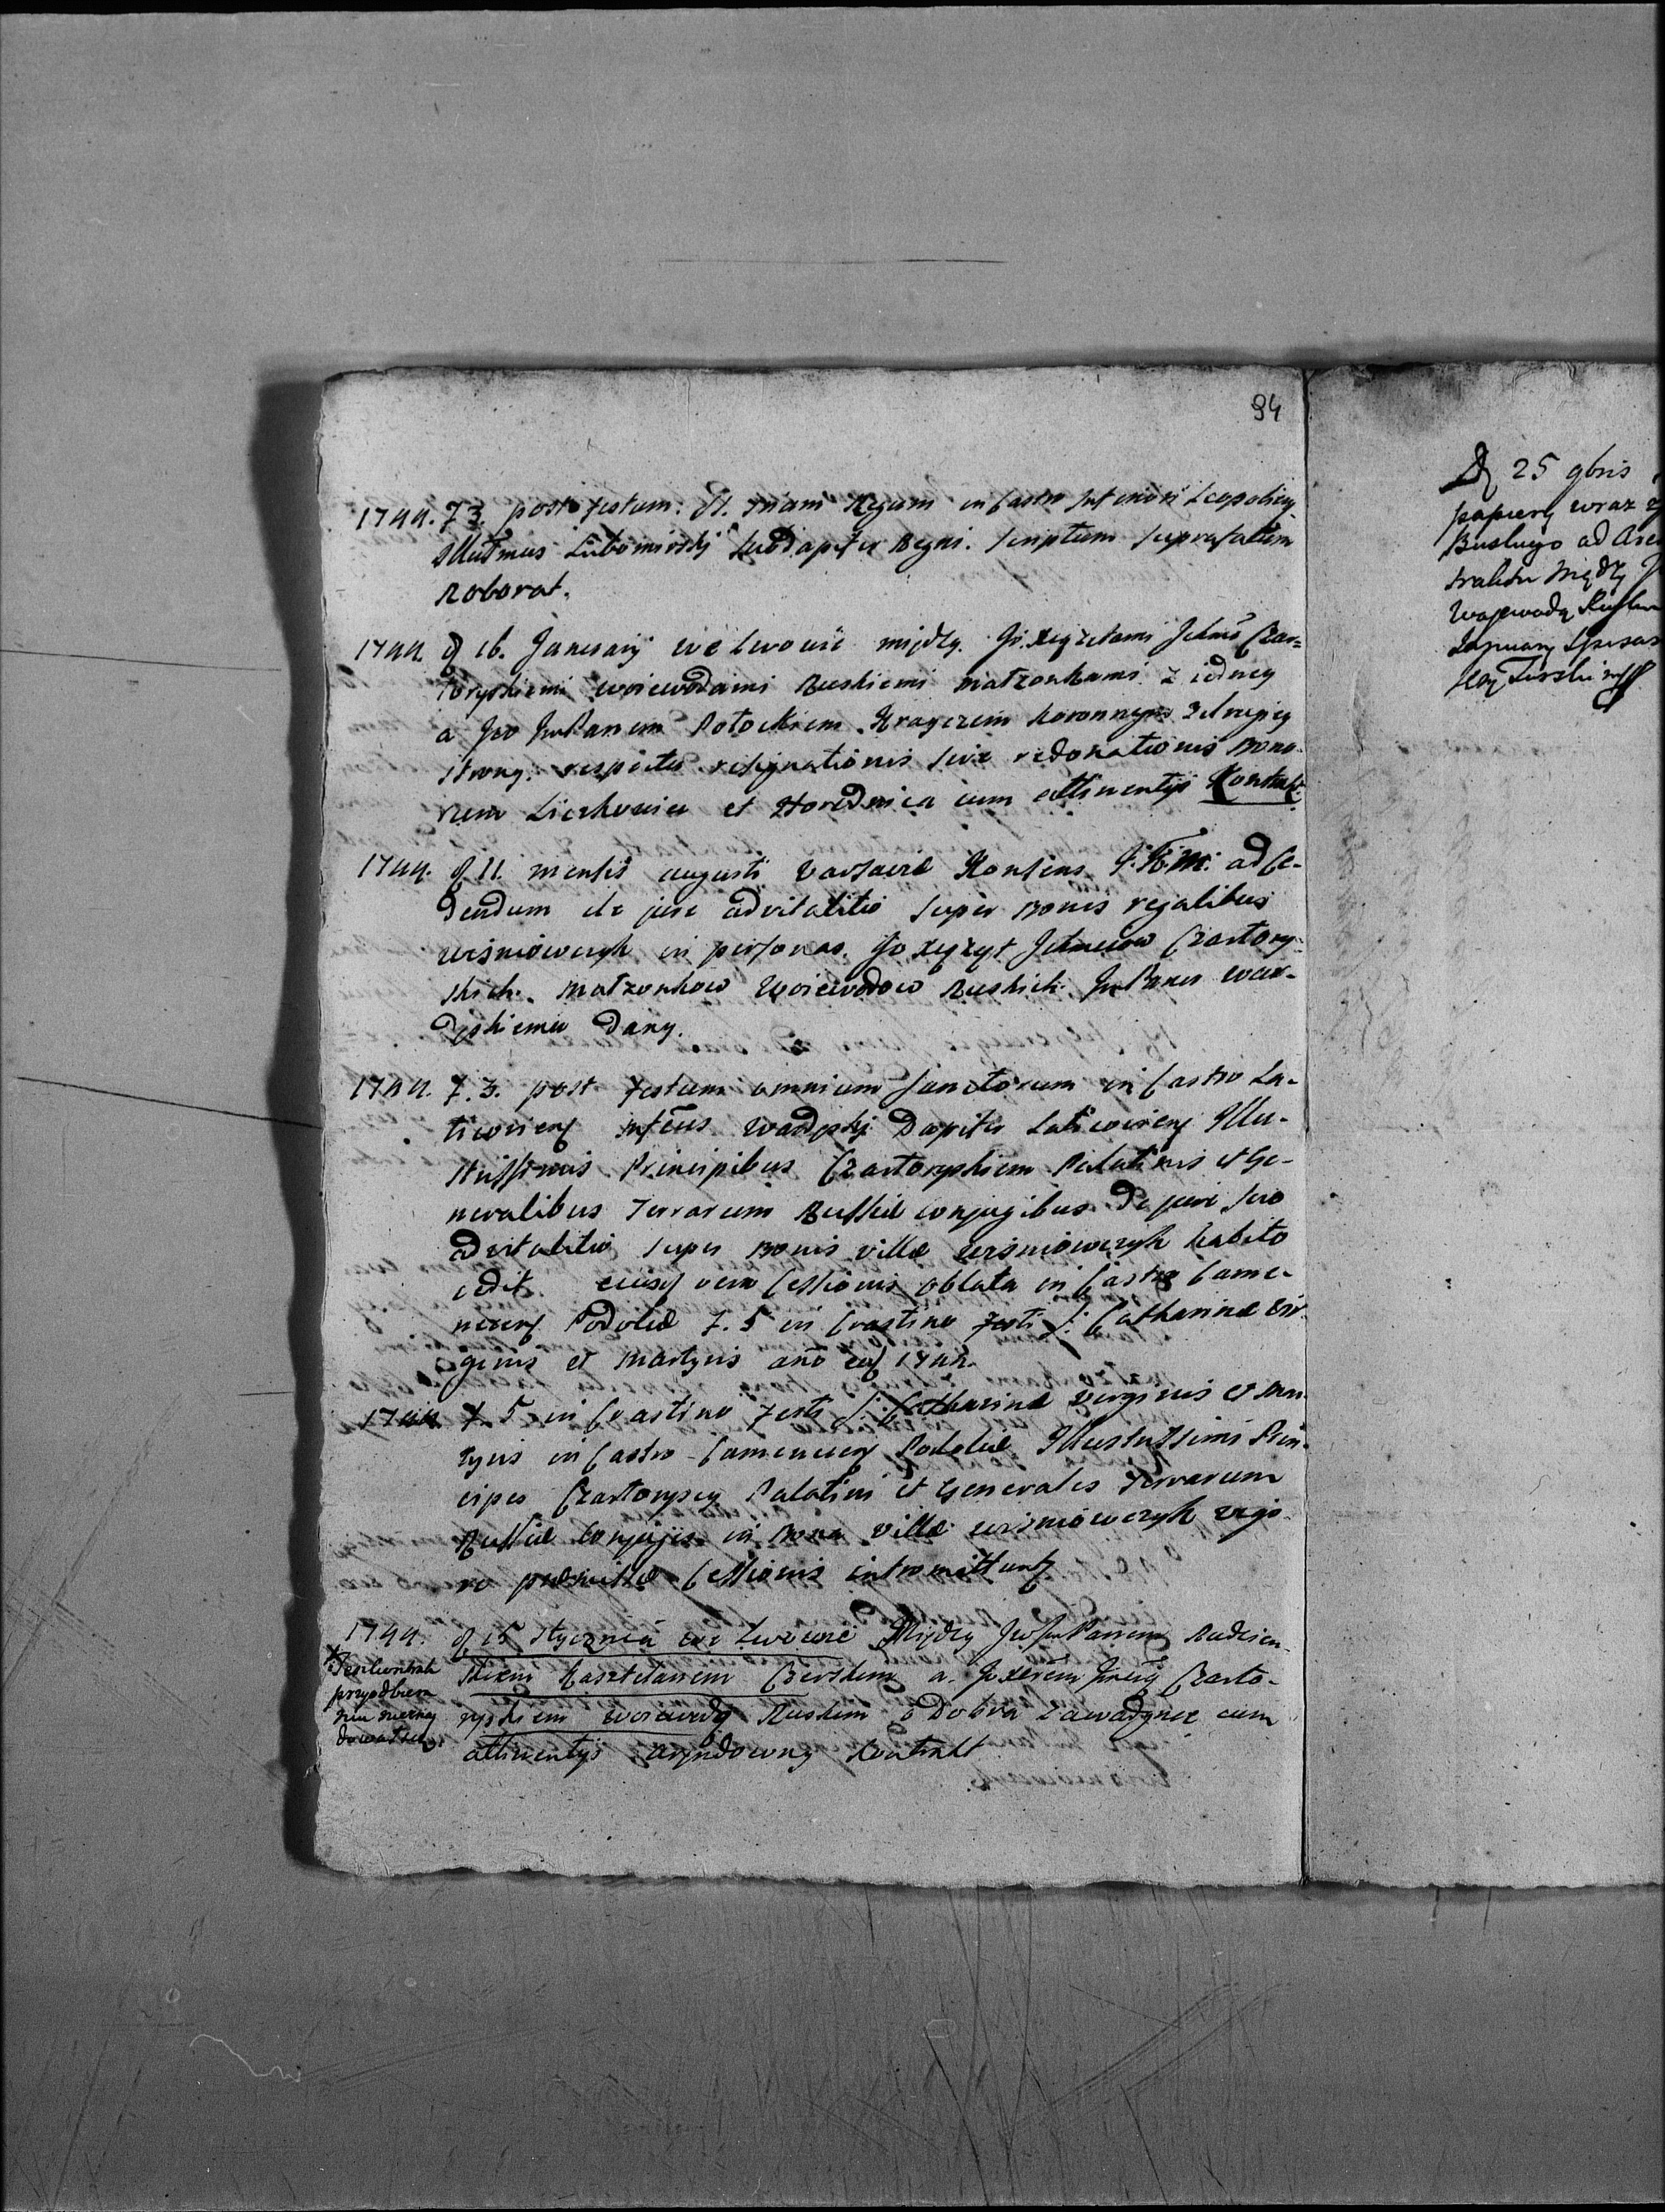 94
1744. f. 3. post festum. St. Trium Regum in Castro Inferiori Leopolien
Illustmus Lubomirskj Subdapifer Regni. Scriptum suprafatum
Roborat.
1744. d 16. January we Lwowie między. Jo. Xiążętami Ichmć Czar=
toryskiemi woiewodami Ruskiemi małżonkami z iedney
a Jwo Panem Potockiem Krayczem koronnym z drugiey
strony. respectu resignationis sive redonationis Bono-
rum Liczkowice et Horodnica cum attinentijs Kontrakt.
1744. d 11. mensis augusti Varsaviæ Konsens J. K. M. ad Ce-
dendum de jure advitalitio super Bonis regalibus
wiśniowczyk in personas. Jo Xiążąt Ichmciow Czartory-
skich. małzonkow Woiewodow Ruskich. Panu War-
dyskiemu dany.
1744. f. 3. post festum omnium Sanctorum in Castro La-
ticovien Wardyskj Dapifer Laticovien Illu-
strissimis Principibus Czartoryskiem Palatinis et Ge-
neralibus Terrarum Russiæ conjugibus de jure suo
advitalitio super Bonis villæ wiśniowczyk habito
cedit. eiusq vero Cessionis oblata in Castro Came-
necen Podoliæ f. 5 in Crastino festi S: Catharinæ Vir-
ginis et Martyris año eoq 1744.
1744 f. 5 in Crastino festi S: Catharinæ Virginis et Mar-
tyris in Castro Camenecen Podoliæ Illustrissimi Prin-
cipes Czartoryscy Palatini et Generales Terrarum
Russiæ Conjuges in Bona villæ wiśniowczyk vigo-
re præmissæ Cessionis intromittunt
1744. d 15 stycznia we Lwowie Między Panem Radzien-
skiem Kasztelanem Czerskim a. Jo Czarto-
ryskiem woiewodą Ruskim o Dobra Zawadynce cum
attinentijs aryndowny Kontrakt
X Ten kontrakt
przy odbiera
niu
D 25 9bris
papiery wraz z
Buskiego ad
traktu między
Wojewodą